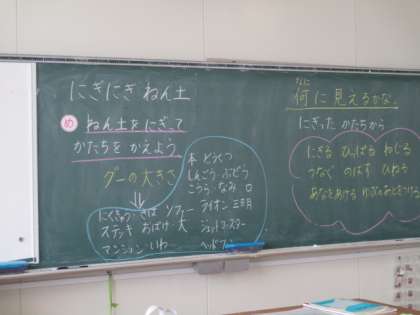 にぎにぎ ねん土
め ねん土をにぎって
かたちを かえよう。
グーの大きさ
本 どうくつ
しんごう ぶどう
こうら なみ 口
にくきゅう さば ソファー ライオン 三日月
ステッキ おばけ 犬 ジェットコースター
マンション いわ
なに
何に見えるかな。
にぎった かたちから
にぎる ひっぱる ねじる
つなぐ のばす ひねる
あなをあける ゆびのあとをつける